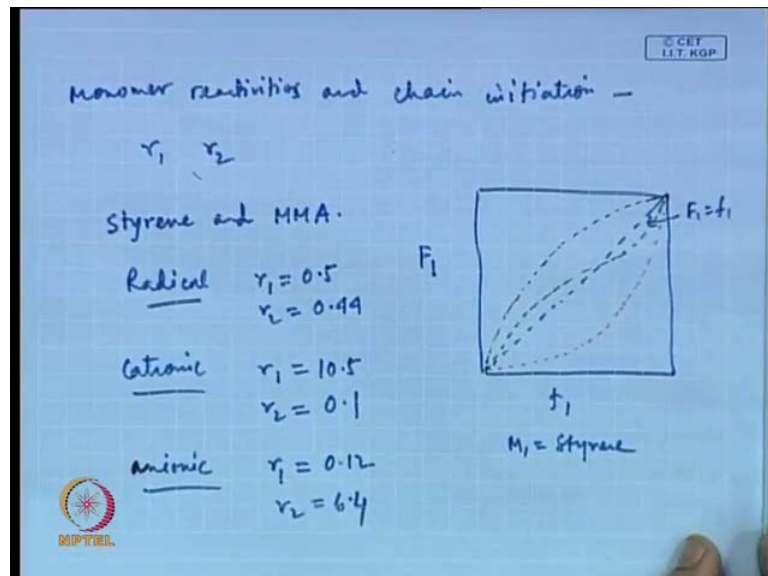 © CET
I.I.T. KGP
Monomer reactivities and chain initiation –
r₁ r₂
Styrene and MMA.
Radical r₁ = 0.5
r₂ = 0.44
Cationic r₁ = 10.5
r₂ = 0.1
anionic r₁ = 0.12
r₂ = 6.4
F₁
F₁ = f₁
f₁
M₁ = Styrene
NPTEL